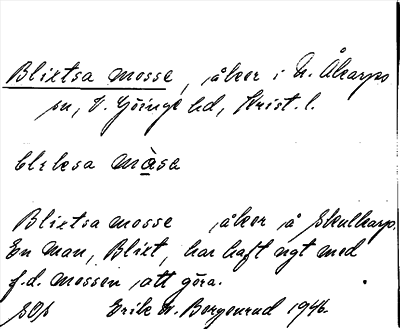 Blixtsa mosse, åker i N. Åkarps
sn, V. Göinge hd, Krist. l.
bleksa màse
Blixtsa mosse , åker å Skulkarp.
En man, Blixt, har haft ngt med
f.d. mossen att göra.
Erik W. Bergenrud 1946.